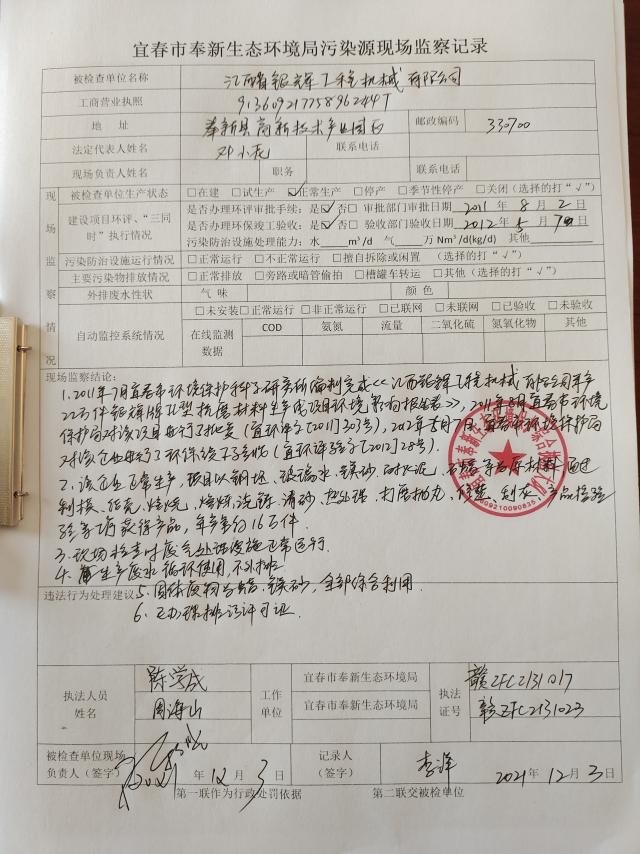 宜春市奉新生态环境局污染源现场监察记录
被检查单位名称 江西省银辉工程机械有限公司
工商营业执照
地 址 奉新县高新技术产业园区 邮政编码 330700
法定代表人姓名 邓小 联系电话
现场负责人姓名 职务 联系电话
现场监察情况
被检查单位生产状态 □在建 □试生产 ☑正常生产 □停产 □季节性停产 □关闭(选择的打“√”)
建设项目环评、“三同时”执行情况
是否办理环评审批手续:是☑否□ 审批部门审批日期 2011年8月2日
是否办理环保竣工验收:是☑否□ 验收部门验收日期 2012年5月7日
污染防治设施处理能力:水 m³/d 气 万Nm³/d(kg/d) 其他
污染防治设施运行情况 □正常运行 □不正常运行 □擅自拆除或闲置 (选择的打“√”)
主要污染物排放情况 □正常排放 □旁路或暗管偷拍 □槽罐车转运 □其他(选择的打“√”)
外排废水性状 气 味 颜 色
自动监控系统情况 □未安装□正常运行 □非正常运行 □已联网 □未联网 □已验收 □未验收
在线监测数据 COD 氨氮 流量 二氧化硫 氮氧化物 其他
现场监察结论:
1.2011年7月宜春市环境保护科学研究所编制完成《江西银辉工程机械有限公司年产
22万件银辉牌 型抗磨材料生产线项目环境影响报告表》,2011年8月宜春市环境
保护局对该项目进行了批复(宜环评字[2011]303号),2012年5月7日,宜春市环境保护局
对该企业进行了环保竣工验收(宜环评验字[2012]28号).
2、该企业正常生产,项目以钢坯、玻璃水、镁砂、 水泥、 等为原材料,通过
制模、 、焙烧、熔炼、浇铸、清砂、热处理、打磨抛光、 、 、产品检验
等工序获得产品,年产量约16万件.
3.现场检查时废气处理设施正常运行.
4、生产废水循环使用,不外排.
违法行为处理建议 5、固体废物 、镁砂,全部综合利用.
6、已办理排污许可证.
执法人员姓名 陈学成 工作单位 宜春市奉新生态环境局 执法证号 赣ZFC2131017
周海山 宜春市奉新生态环境局 赣ZFC2131023
被检查单位现场负责人(签字) 年12月3日 记录人(签字) 李洋 2021年12月3日
第一联作为行政处罚依据 第二联交被检单位